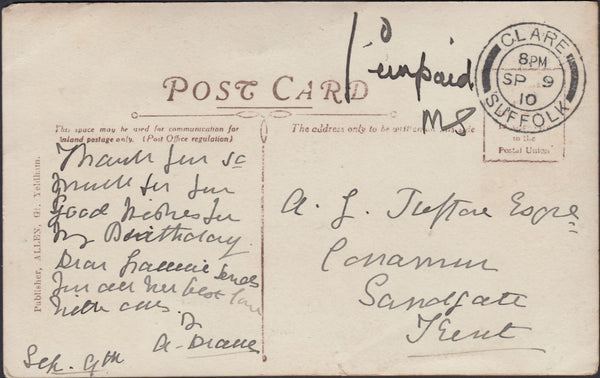 1D
unpaid
MS
CLARE
8PM
SP 9
10
SUFFOLK
POST CARD
This space may be used for communication for
inland postage only. (Post Office regulation)
The address only to be written on this side
to the
Postal Union
Publisher, ALLEN, Gt. Yeldham.
Thank you so
much for your
Good Wishes for
my Birthday.
Dear Grannie sends
you all her best love
with ours.
Sep. 9th
Esqre
Sandgate
Kent